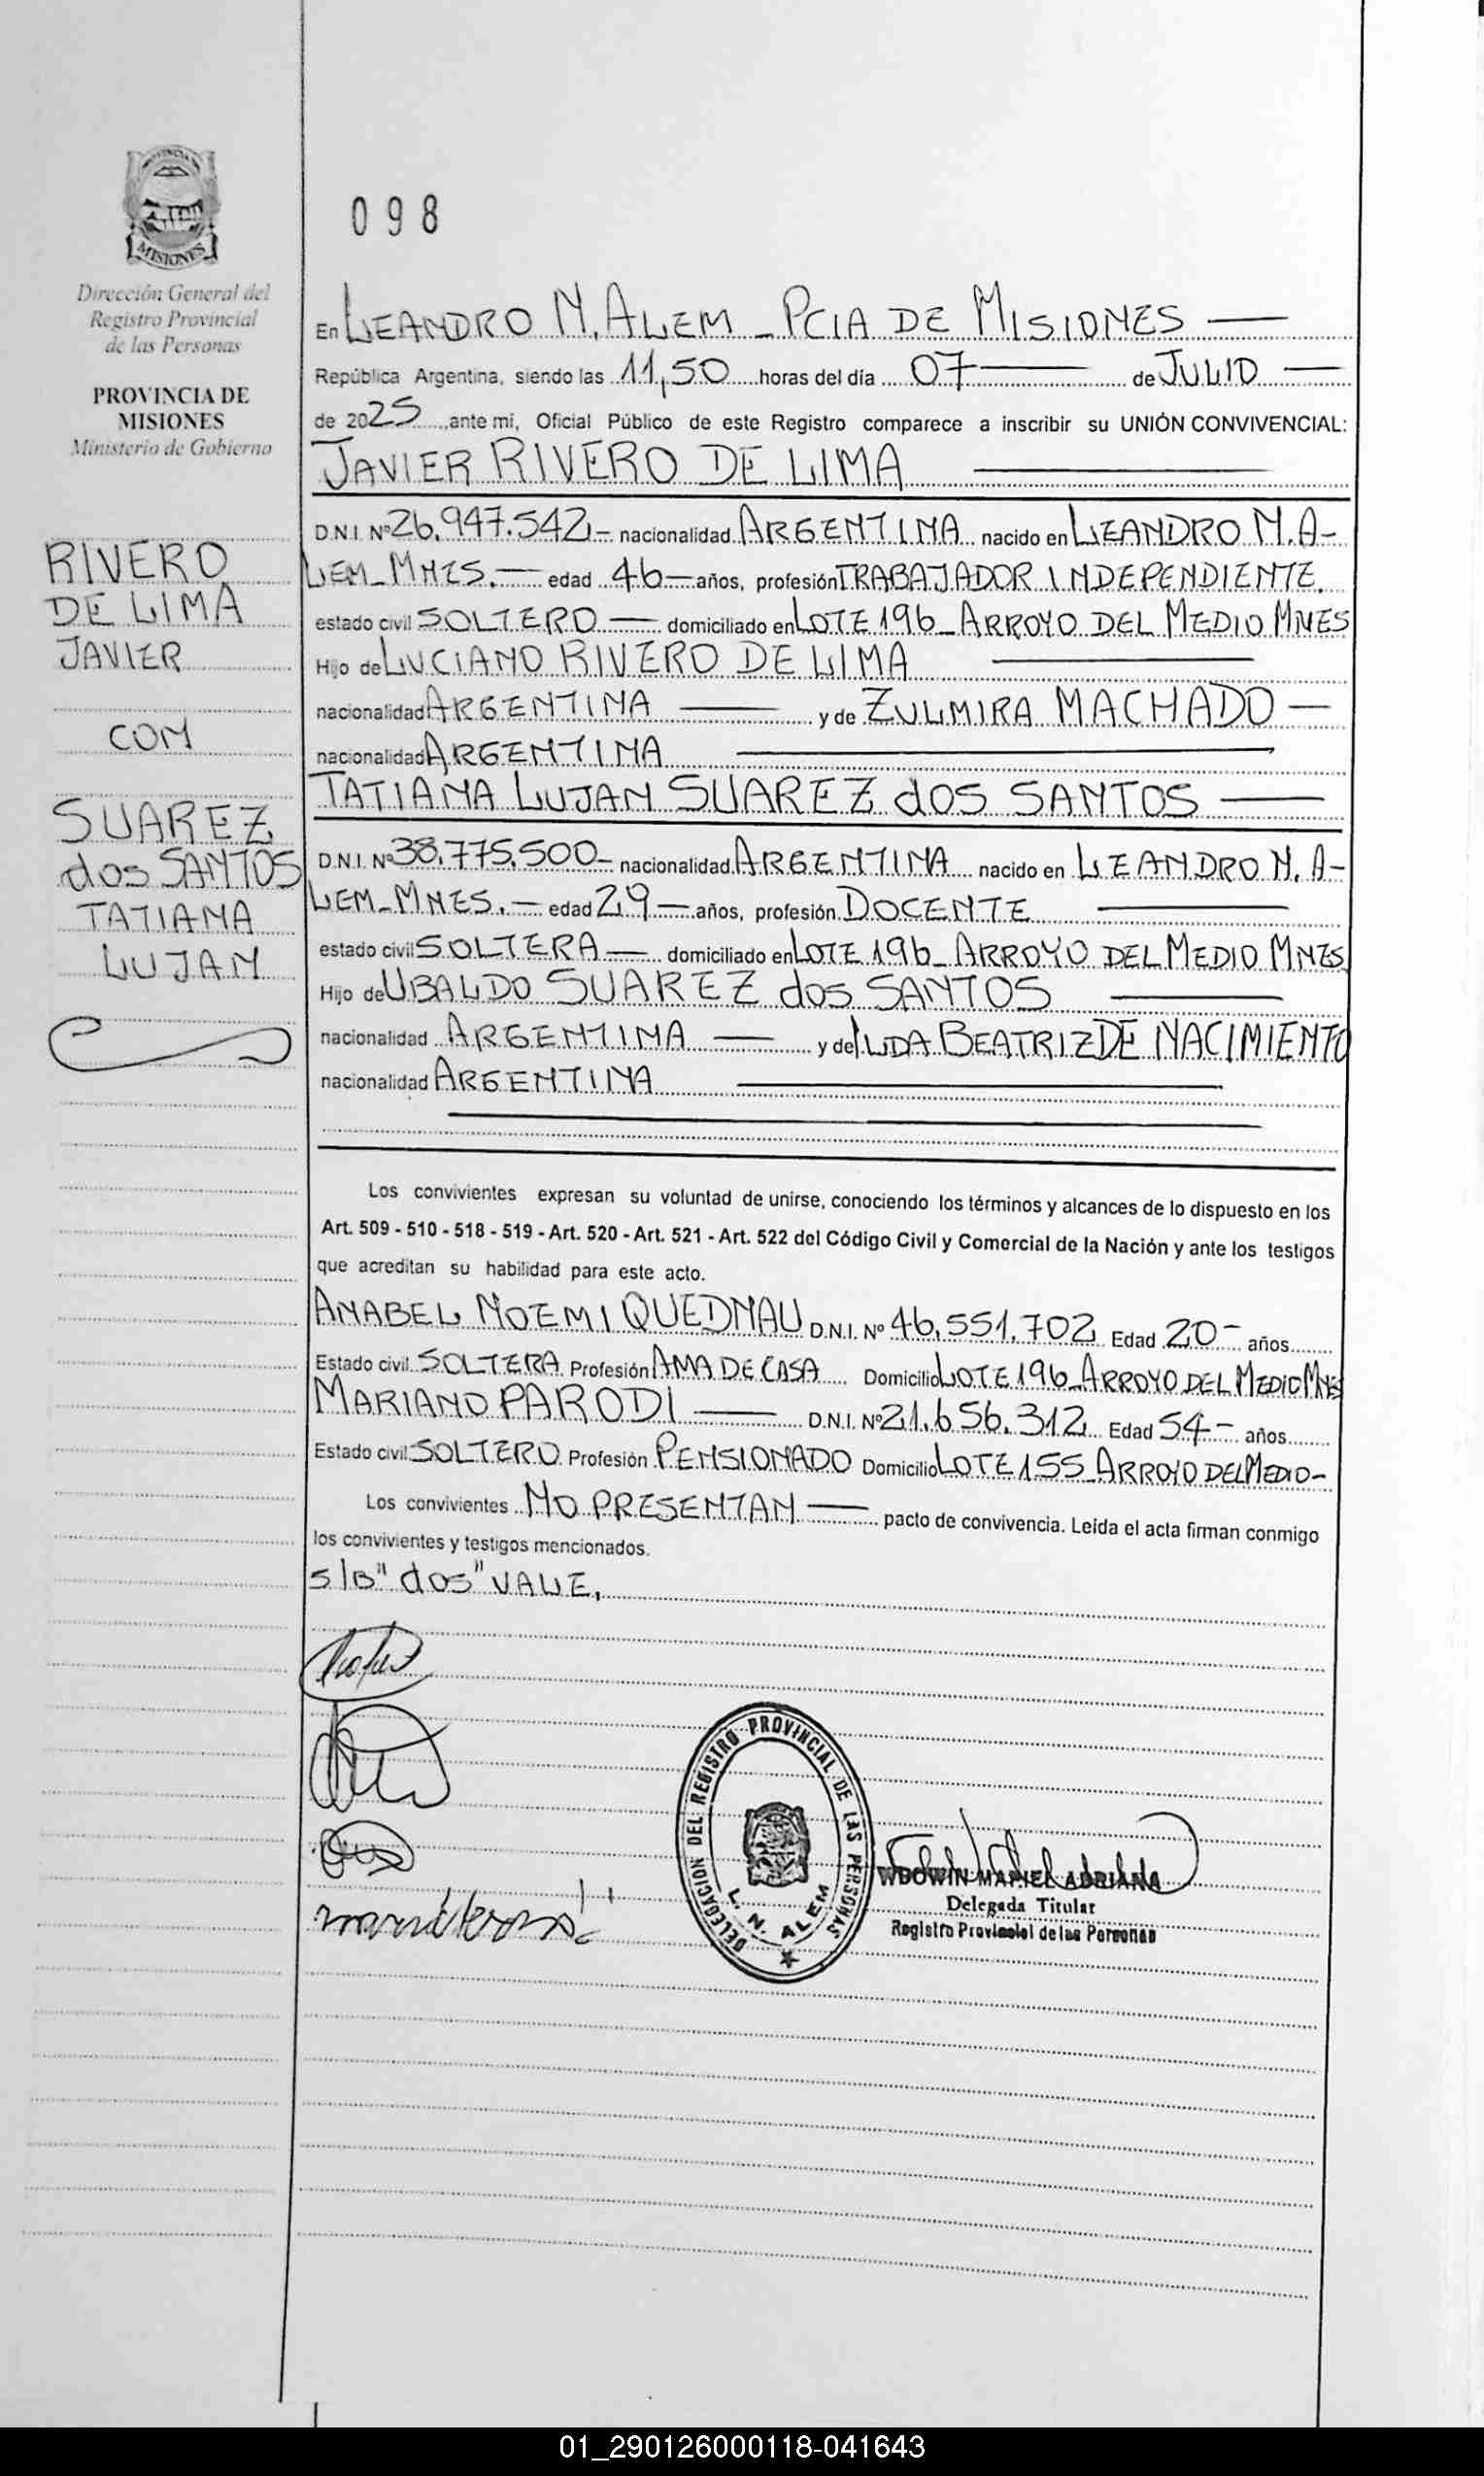 PROVINCIA DE
MISIONES
Dirección General del
Registro Provincial
de las Personas
PROVINCIA DE
MISIONES
Ministerio de Gobierno
RIVERO
DE LIMA
JAVIER
CON
SUAREZ
dos SANTOS
TATIANA
LUJAN
098
En LEANDRO N. ALEM - PCIA DE MISIONES
República Argentina, siendo las 11,50 horas del día 07 de JULIO
de 2025, ante mi, Oficial Público de este Registro comparece a inscribir su UNIÓN CONVIVENCIAL:
JAVIER RIVERO DE LIMA
D.N.I. Nº 26.947.542.- nacionalidad ARGENTINA nacido en LEANDRO N. A-
LEM - MNES. - edad 46 - años, profesión TRABAJADOR INDEPENDIENTE
estado civil SOLTERO - domiciliado en LOTE 196 - ARROYO DEL MEDIO MNES
Hijo de LUCIANO RIVERO DE LIMA
nacionalidad ARGENTINA y de ZULMIRA MACHADO -
nacionalidad ARGENTINA
TATIANA LUJAN SUAREZ dos SANTOS
D.N.I. Nº 38.775.500- nacionalidad ARGENTINA nacido en LEANDRO N. A-
LEM - MNES. - edad 29 - años, profesión DOCENTE
estado civil SOLTERA - domiciliado en LOTE 196 - ARROYO DEL MEDIO MNES
Hijo de UBALDO SUAREZ dos SANTOS
nacionalidad ARGENTINA y de LIDA BEATRIZ DE NACIMIENTO
nacionalidad ARGENTINA
Los convivientes expresan su voluntad de unirse, conociendo los términos y alcances de lo dispuesto en los
Art. 509 - 510 - 518 - 519 - Art. 520 - Art. 521 - Art. 522 del Código Civil y Comercial de la Nación y ante los testigos
que acreditan su habilidad para este acto.
ANABEL NOEMI QUEDNAU D.N.I. Nº 46.551.702 Edad 20- años
Estado civil SOLTERA Profesión AMA DE CASA Domicilio LOTE 196 - ARROYO DEL MEDIO MNES
MARIANO PARODI D.N.I. Nº 21.656.312 Edad 54- años
Estado civil SOLTERO Profesión PENSIONADO Domicilio LOTE 155 - ARROYO DEL MEDIO-
Los convivientes NO PRESENTAN pacto de convivencia. Leída el acta firman conmigo
los convivientes y testigos mencionados.
S/B "dos" VALE.
DELEGACION DEL REGISTRO PROVINCIAL DE LAS PERSONAS
L. N. ALEM
WDOWIN MARIEL ADRIANA
Delegada Titular
Registro Provincial de las Personas
01_290126000118-041643